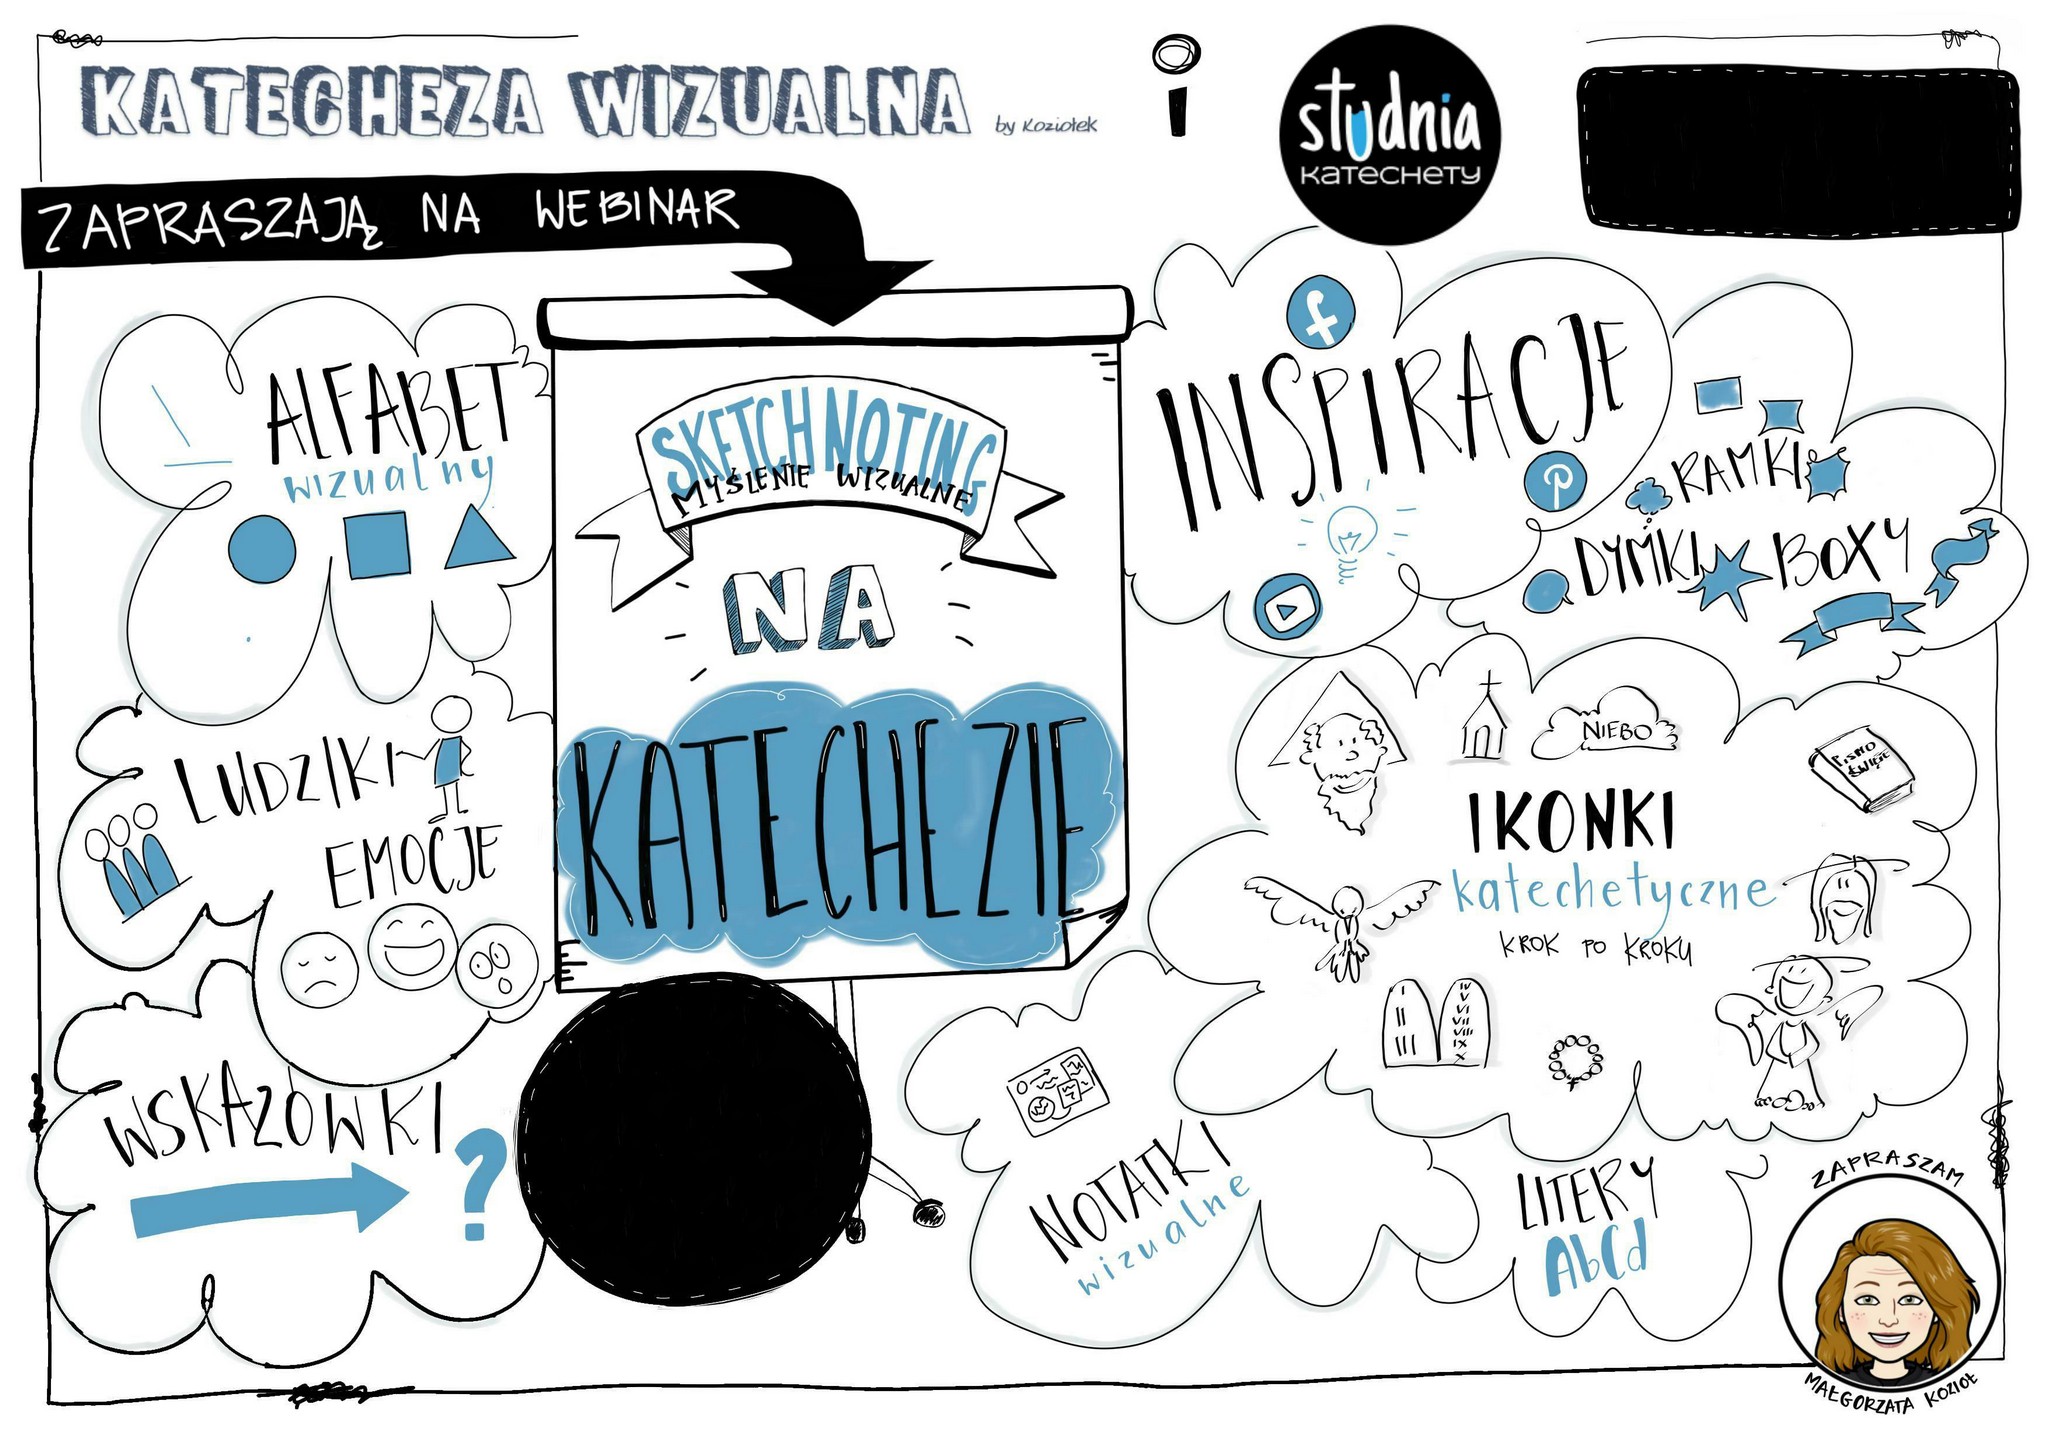 KATECHEZA WIZUALNA by Koziołek
i
studnia
KATECHETY
ZAPRASZAJĄ NA WEBINAR
SKETCHNOTING
MYŚLENIE WIZUALNE
NA
KATECHEZIE
ALFABET
wizualny
LUDZIKI
EMOCJE
WSKAZÓWKI
?
INSPIRACJE
RAMKI
DYMKI BOXY
NIEBO
PISMO
ŚWIĘTE
IKONKI
katechetyczne
KROK PO KROKU
I
II
III
IV
V
VI
VII
VIII
IX
X
NOTATKI
wizualne
LITERY
AbCd
ZAPRASZAM
MAŁGORZATA KOZIOŁ